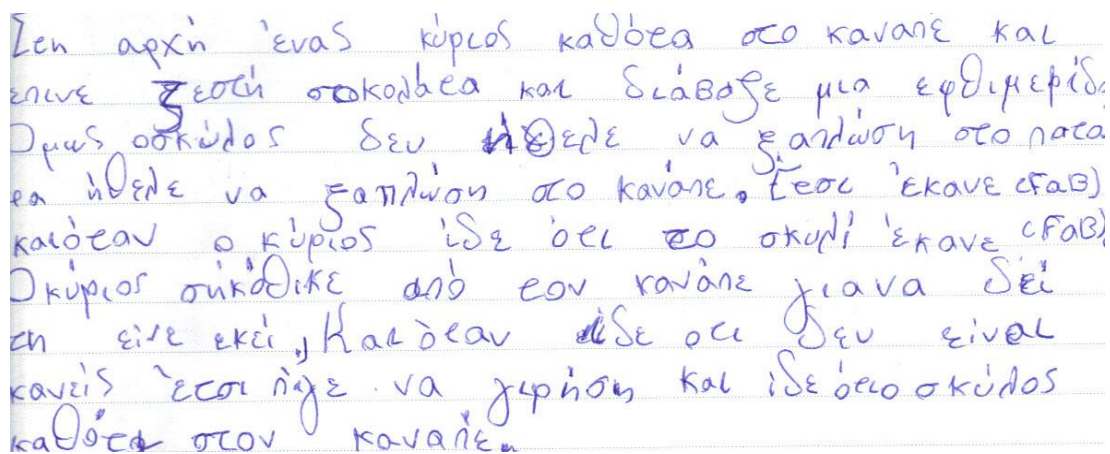 Στη αρχή ένας κύριος καθότα στο καναπέ και
επινε ζεστή σοκολάτα και διάβαζε μια εφθιμερίδα
Όμως οσκύλος δεν ήθελε να ξαπλώση στο πατο
τα ήθελε να ξαπλώση στο κανάπε. Έτσι έκανε (Γαβ)
καιόταν ο κύριος ίδε ότι το σκυλί έκανε (Γαβ)
Οκύριος σικόθικε από τον κανάπε γιανα δεί
τη είνε εκεί, Και όταν ίδε οτι δεν είναι
κανείς έτσι πίγε να γιρήση και ίδε ότιο σκύλος
καθότα στον καναπέ.